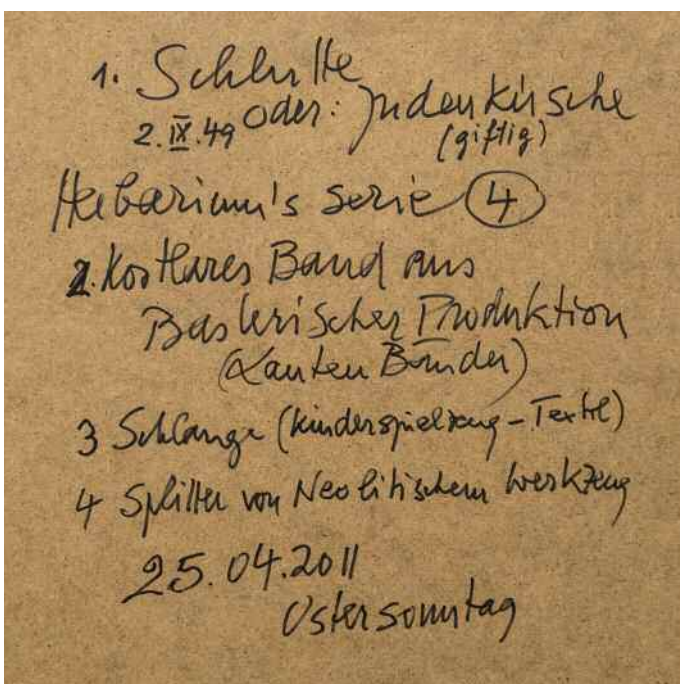 1. Schlutte
2.IX.49 oder: Judenkirsche
(giftig)
Herbarium's Serie 4
2. Kostbares Band aus
Baslerischer Produktion
(Lauten Bänder)
3 Schlange (Kinderspielzeug-Textil)
4 Splitter von Neolitischem Werkzeug
25.04.2011
Ostersonntag